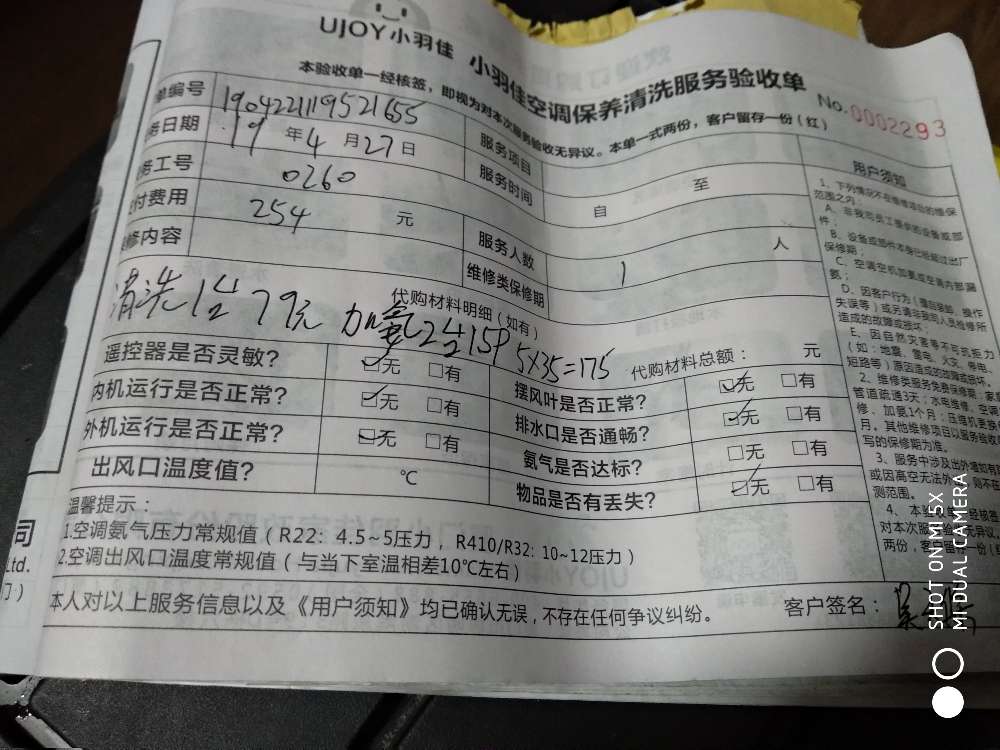 UJOY小羽佳 小羽佳空调保养清洗服务验收单
本验收单一经核签，即视为对本次服务验收无异议。本单一式两份，客户留存一份（红）
No.0002293
单编号 190422119521655
服务项目
务日期 19年4月27日
服务时间 自 至
务工号 0260
服务人数 1 人
付费用 254 元
维修类保修期
修内容
代购材料明细（如有）
清洗1台79元 加氨2台15P 5X35=175
代购材料总额： 元
遥控器是否灵敏？ ☑无 □有
摆风叶是否正常？ ☑无 □有
内机运行是否正常？ ☑无 □有
排水口是否通畅？ ☑无 □有
外机运行是否正常？ ☑无 □有
氨气是否达标？ □无 □有
出风口温度值？ ℃
物品是否有丢失？ ☑无 □有
温馨提示：
1.空调氨气压力常规值（R22：4.5~5压力，R410/R32：10~12压力）
2.空调出风口温度常规值（与当下室温相差10℃左右）
本人对以上服务信息以及《用户须知》均已确认无误，不存在任何争议纠纷。
客户签名：
用户须知
1、下列情况不在维修项目的维保
范围之内：
A、非我司员工提供的设备或部
件；
B、设备或部件本身已经超过出厂
保修期；
C、空调空机加氨或空调内部漏
氨；
D、因客户行为（擅自装卸、操作
失误等）或另请非我司人员检修所
造成的故障或损坏；
E、因自然灾害等不可抗拒力
（如：地震、雷电、火灾、停电、
短路等）原因造成的故障或损坏。
2、维修类服务免费保修期：家庭
管道疏通3天；水电维修、空调
修、加氨1个月；压缩机更换
月。其他维修项目以服务验收
写的保修期为准。
3、服务中涉及出外墙加有
或因高空无法外 则不在
测范围。
4、本 经核签
对本次服务验 无异议。
两份，客户留存一份（
司
Ltd.
门）
SHOT ON MI 5X
MI DUAL CAMERA